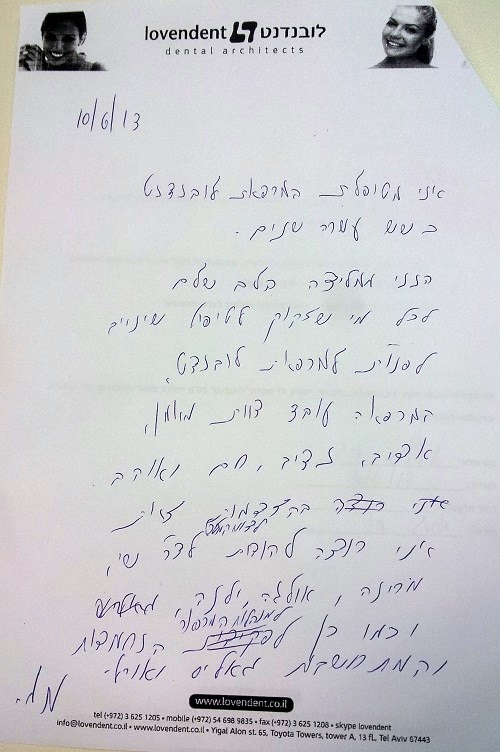 lovendent לובנדנט
dental architects
10/6/13
אני מטופלת במרפאת לובנדנט
כ שש עשרה שנים.
הנני ממליצה בלב שלם
לכל מי שזקוק לטיפול שיניים
לפנות למרפאת לובנדט
במרפאה עובד צוות מיומן,
אדיב, נדיב, חם ואוהב
אני רוצה בהזדמנות זאת
אני רוצה להודות לדר' שי,
מרינה, אולגה, ילנה,
למנהלות המרפאה
וכמו כן הנחמדות
והמתחשבות גאליס ואורלי
www.lovendent.co.il
tel (+972) 3 625 1205 • mobile (+972) 54 698 9835 • fax (+972) 3 625 1208 • skype lovendent
info@lovendent.co.il • www.lovendent.co.il • Yigal Alon st. 65, Toyota Towers, tower A, 13 fl., Tel Aviv 67443